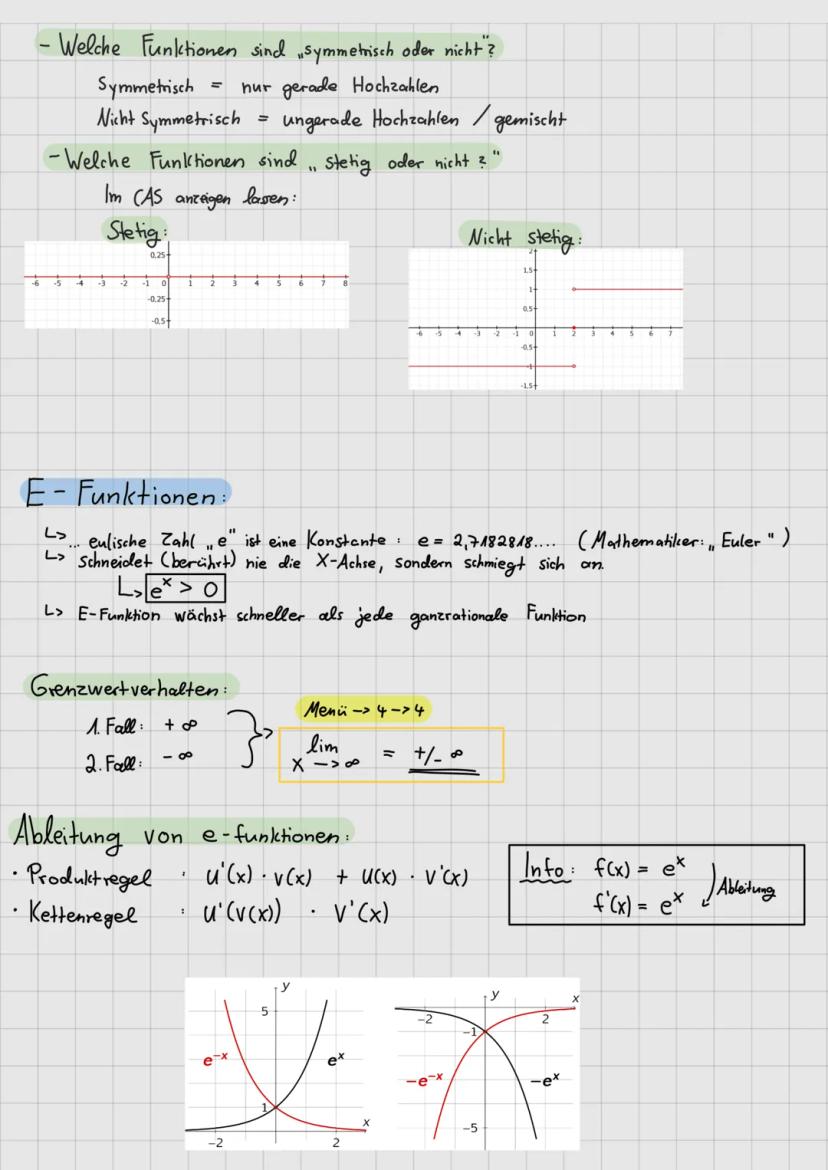 - Welche Funktionen sind „symmetrisch oder nicht"?
Symmetrisch = nur gerade Hochzahlen
Nicht Symmetrisch = ungerade Hochzahlen / gemischt
- Welche Funktionen sind „stetig oder nicht?"
Im CAS anzeigen lassen:
Stetig:
0,25
-6 -5 -4 -3 -2 -1 0 1 2 3 4 5 6 7 8
-0.25
-0.5
Nicht stetig:
2
1.5
1
0.5
-6 -5 -4 -3 -2 -1 0 1 2 3 4 5 6 7
-0.5
-1
-1.5
E-Funktionen:
↳ ... eulische Zahl „e" ist eine Konstante: e = 2,7182818.... (Mathematiker: „Euler")
↳ schneidet (berührt) nie die X-Achse, sondern schmiegt sich an.
↳ eˣ > 0
↳ E-Funktion wächst schneller als jede ganzrationale Funktion
Grenzwertverhalten:
1. Fall: + ∞
2. Fall: - ∞
Menü -> 4 -> 4
lim = +/- ∞
X -> ∞
Ableitung von e-funktionen:
• Produktregel : u'(x) · v(x) + u(x) · v'(x)
• Kettenregel : u'(v(x)) · v'(x)
Info: f(x) = eˣ
f'(x) = eˣ
Ableitung
y
5
e⁻ˣ eˣ
1
x
-2 2
y
x
-2 2
-1
-e⁻ˣ -eˣ
-5